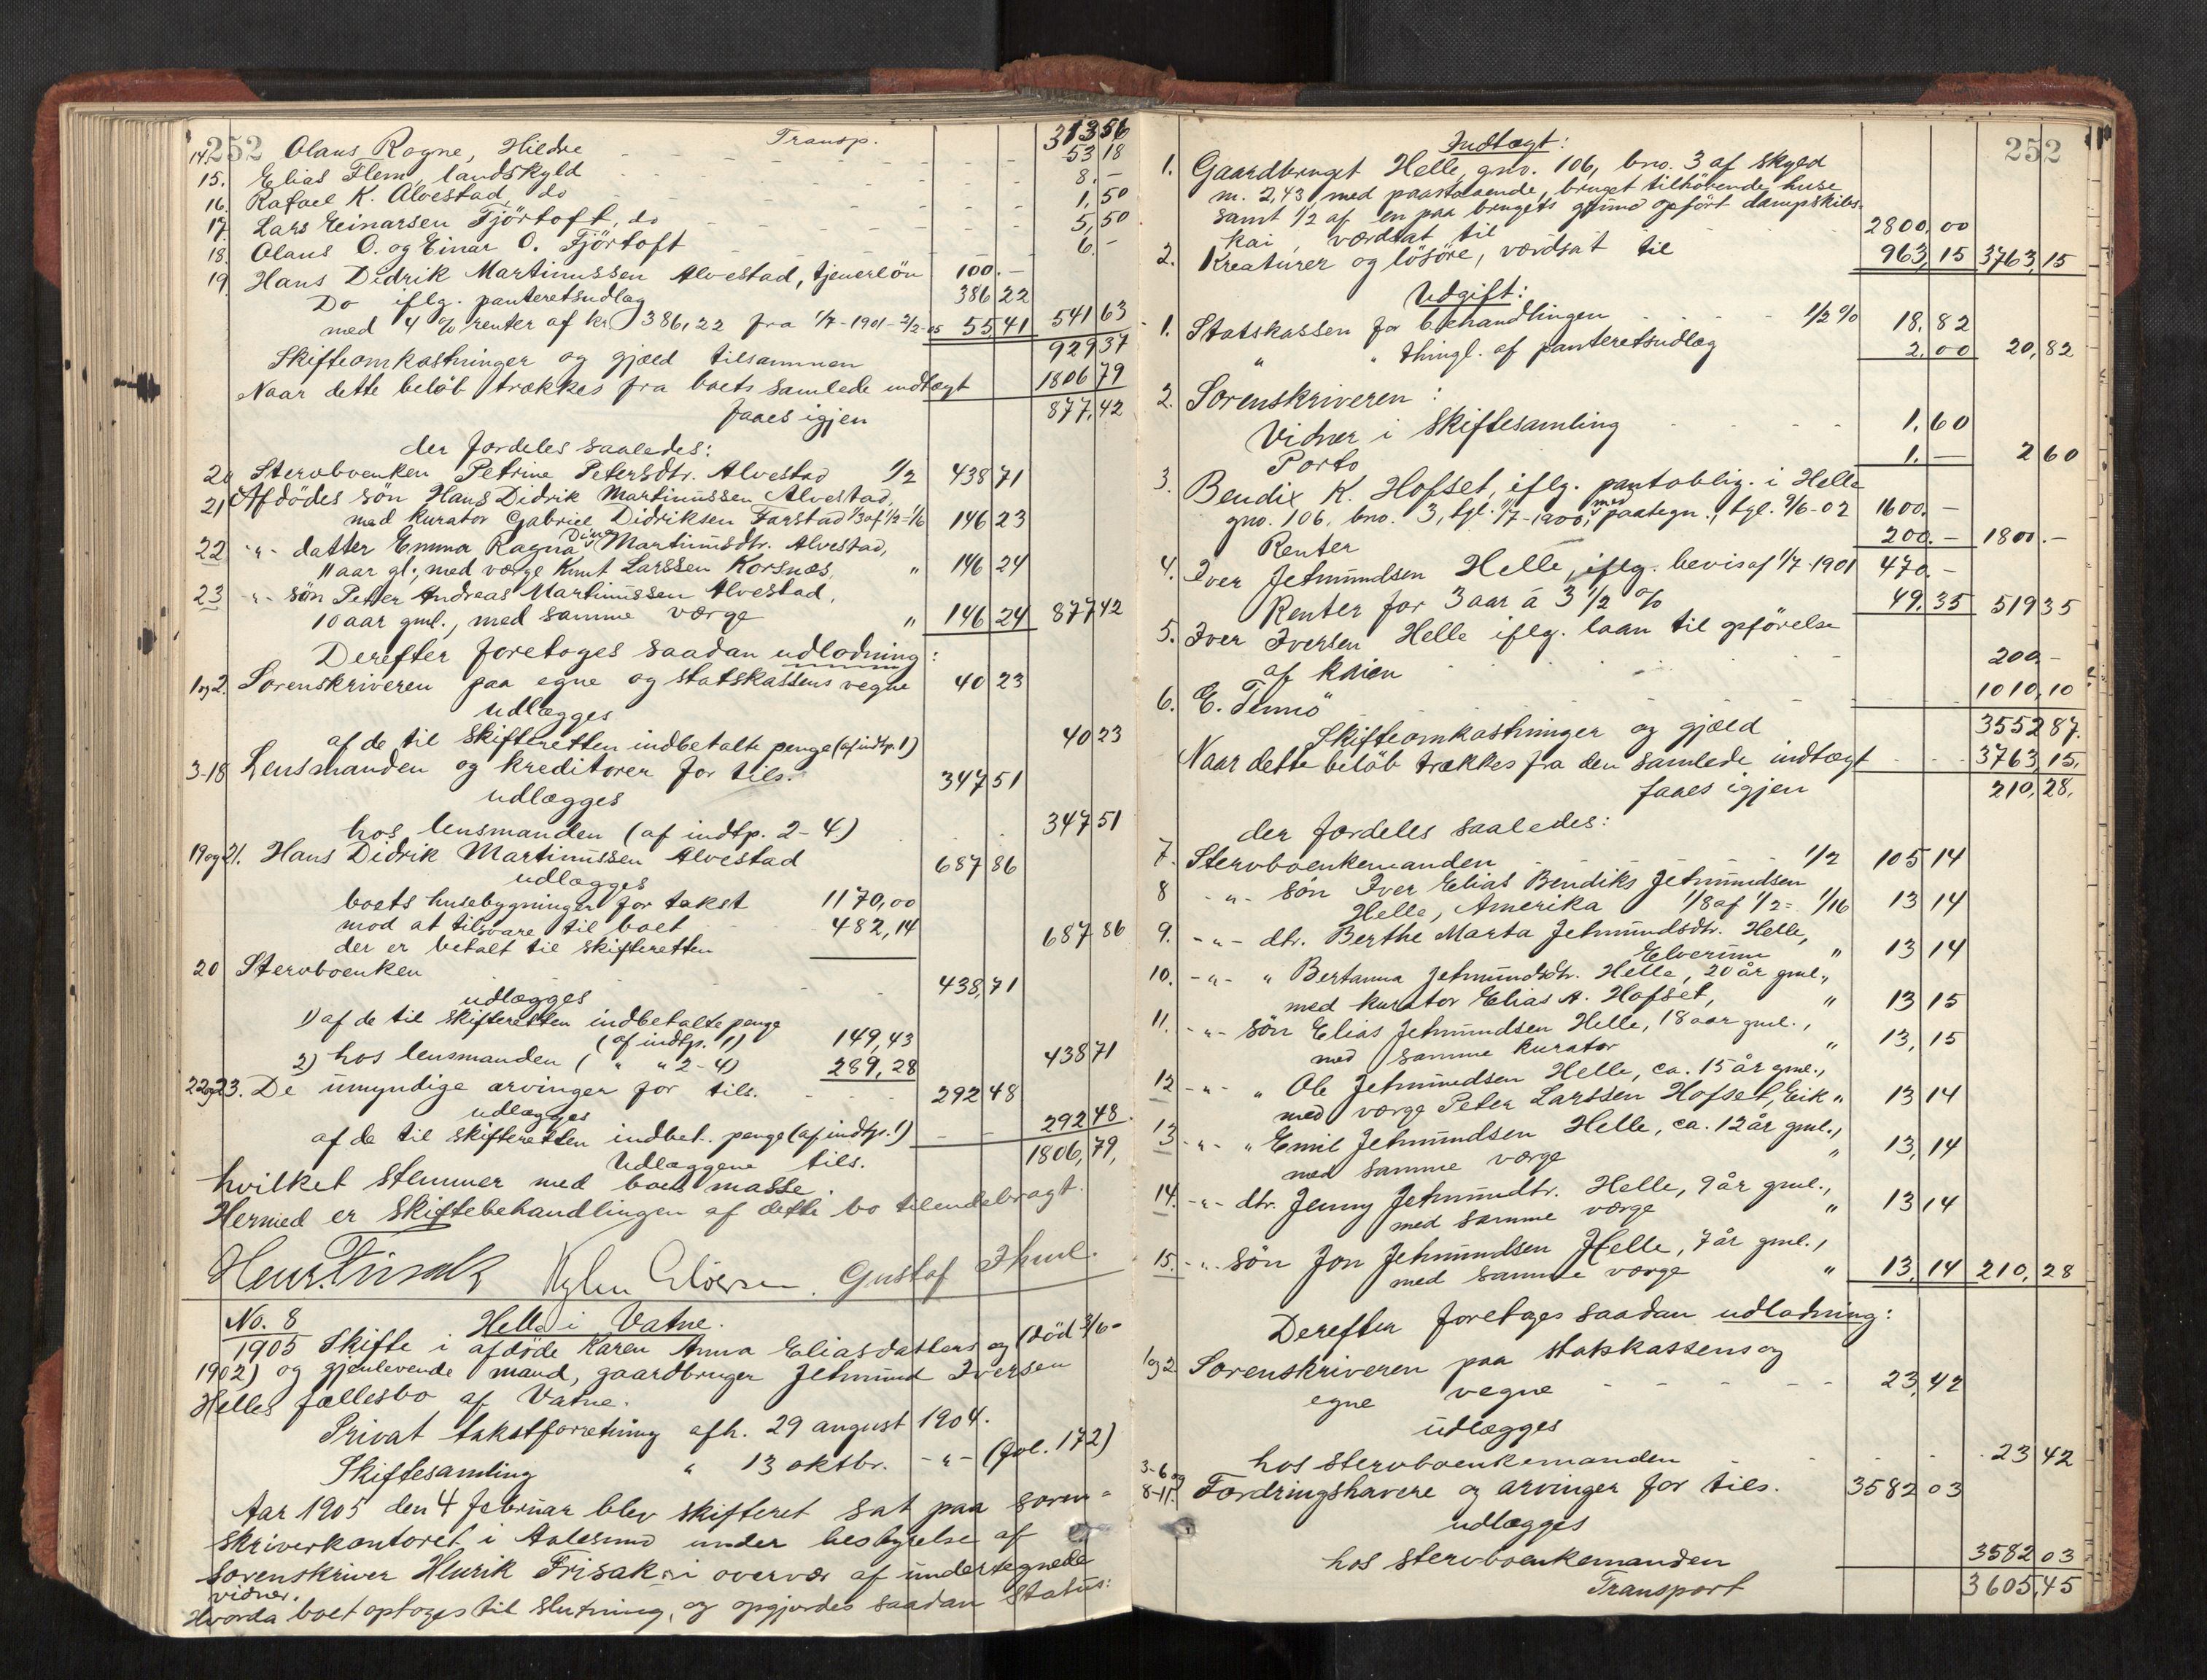 252
Transp. 313 56
14. Olaus Rogne, Hildre 53 18
15. Elias Flem, landskyld 8. -
16. Rafael K. Alvestad, do 1,50
17. Lars Einarsen Fjörtoft, do 5,50
18. Olaus O. og Einar O. Fjörtoft 6. -
19. Hans Didrik Martinussen Alvestad, tjenerlön 100. -
Do iflg. panteretsudlæg 386 22
med 4 % renter af kr 386,22 fra 1/7-1901-2/2-05 55,41 541 63
Skifteomkostninger og gjæld tilsammen 929 37
Naar dette belöb trækkes fra boets samlede indtægt 1806 79
faaes igjen 877,42
der fordeles saaledes:
20 Stervboenken Petrine Petersdtr. Alvestad 1/2 438 71
21 Afdödes sön Hans Didrik Martinussen Alvestad,
med kurator Gabriel Didriksen Farstad 1/3 af 1/2=1/6 146 23
22 -"- datter Emma Ragna Dina Martinusdtr. Alvestad,
11 aar gl., med værge Knut Larssen Korsnæs, " 146 24
23 -"- sön Petter Andreas Martinussen Alvestad,
10 aar gml., med samme værge " 146 24 877 42
Derefter foretages saadan udlodning:
1og2. Sorenskriveren paa egne og statskassens vegne 40 23
udlægges
af de til skifteretten indbetalte penge (af indtp. 1) 40 23
3-18 Lensmanden og kreditorer for tils. 347 51
udlægges
hos lensmanden (af indtp. 2-4) 347 51
19og21. Hans Didrik Martinussen Alvestad 687 86
udlægges
boets husebygninger for takst 1170,00
mod at tilsvare til boet 482,14 687 86
der er betalt til skifteretten
20 Stervboenken 438,71
udlægges
1) af de til skifteretten indbetalte penge
(af indtp. 1) 149,43
2) hos lensmanden ( " " 2-4) 289,28 438 71
22og23. De umyndige arvinger for tils. 292 48
udlægges
af de til skifteretten indbet. penge (af indtp. 1) 292 48.
Udlæggene tils. 1806,79,
hvilket stemmer med boets masse.
Hermed er skiftebehandlingen af dette bo tilendebragt.
Henr Frisak Gustaf
No. 8 Helle i Vatne.
1905 Skifte i afdöde Karen Anna Eliasdatters og (död 3/6-
1902) og gjenlevende mand, gaardbruger Jetmund Iversen
Helles fællesbo af Vatne.
Privat takstforretning afh. 29 august 1904.
Skiftesamling " 13 oktbr. -"- (fol. 172)
Aar 1905 den 4 februar blev skifteret sat paa soren-
skriverkontoret i Aalesund under bestyrelse af
sorenskriver Henrik Frisak i overvær af undertegnede
vidner.
Hvorda boet optoges til slutning, og opgjordes saadan status:
252
Indtægt:
1. Gaardbruget Helle, gno. 106, bno. 3 af skyld
m. 2,43 med paastaaende, bruget tilhörende huse
samt 1/2 af en paa brugets grund opfört dampskibs-
kai, værdsat til 2800,00
2. Kreaturer og lösöre, værdsat til 963,15 3763,15
Udgift:
1. Statskassen for behandlingen 1/2 % 18,82
" " thingl. af panteretsudlæg 2,00 20,82
2. Sorenskriveren:
Vidner i skiftesamling 1,60
Porto 1. - 2 60
3. Bendix K. Hofset, iflg. pantoblig. i Helle
gno. 106, bno. 3, tgl. 1/7-1900, med paategn., tgl. 9/6-02 1600. -
Renter 200. - 1800. -
4. Iver Jetmundsen Helle, iflg. bevis af 1/7-1901 470. -
Renter for 3 aar á 3 1/2 % 49,35 519 35
5. Iver Iversen Helle iflg. laan til opförelse
af kaien 200, -
6. E. Tennö 1010,10
Skifteomkostninger og gjæld 3552 87.
Naar dette belöb trækkes fra den samlede indtægt 3763,15.
faaes igjen 210,28.
der fordeles saaledes:
7. Stervboenkemanden 1/2 105 14
8 -"- sön Iver Elias Bendiks Jetmundsen
Helle, Amerika 1/8 af 1/2 = 1/16 13 14
9. -"- dtr. Berthe Marta Jetmundsdtr. Helle,
Elverum " 13 14
10. -"- " Bertanna Jetmundsdtr. Helle, 20 år gml.,
med kurator Elias A. Hofset, " 13 15
11. -"- sön Elias Jetmundsen Helle, 18 aar gml.,
med samme kurator " 13,15
12 -"- " Ole Jetmundsen Helle, ca. 15 år gml.,
med værge Peter Larssen Hofset, Eik " 13 14
13 -"- " Emil Jetmundsen Helle, ca. 12 år gml.,
med samme værge " 13,14
14. -"- dtr. Jenny Jetmundtr. Helle, 9 år gml.,
med samme værge " 13 14
15. -"- sön Jon Jetmundsen Helle, 7 år gml.,
med samme værge " 13,14 210,28
Derefter foretages saadan udlodning:
1og2 Sorenskriveren paa statskassens og
egne vegne 23,42
udlægges
hos stervboenkemanden 23 42
3-6 og
8-15. Fordringshavere og arvinger for tils. 3582 03
udlægges
hos stervboenkemanden 3582 03
Transport 3605,45